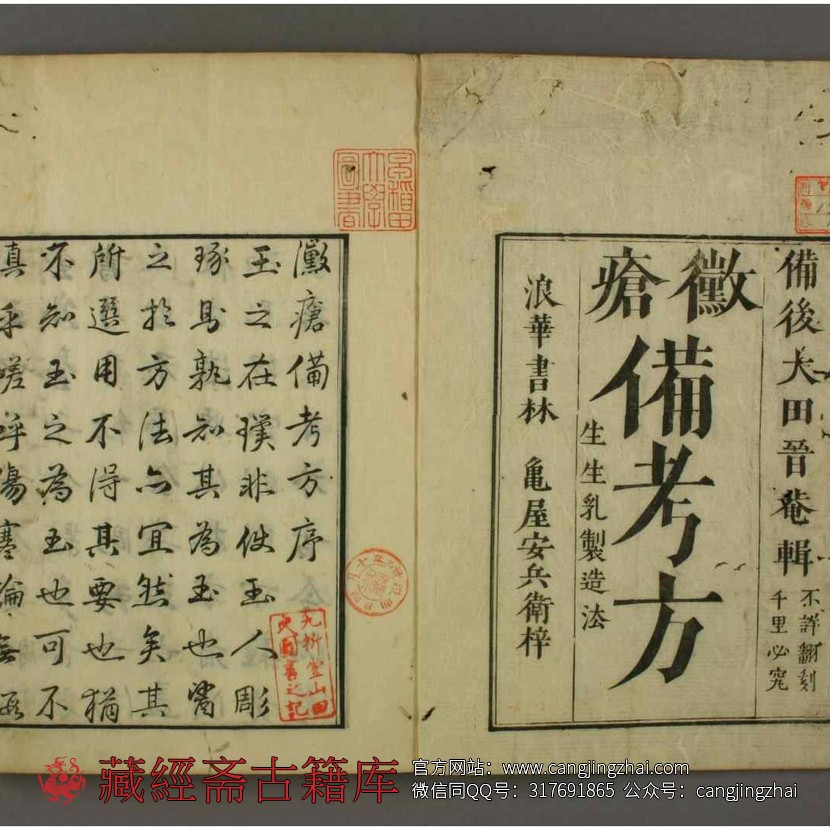 備後大田晉菴輯
不許翻刻
千里必究
黴瘡
備考方
生生乳製造法
浪華書林 亀屋安兵衛梓
早稲田大學圖書
黴瘡備考方序
玉之在璞非使玉人彫
琢烏孰知其為玉也醫
之於方法亦宜然矣其
所選用不得其要也猶
不知玉之為玉也可不
真乎嗟呼傷寒論無
藏經斋古籍库
官方网站：www.cangjingzhai.com
微信同QQ号：317691865 公众号：cangjingzhai